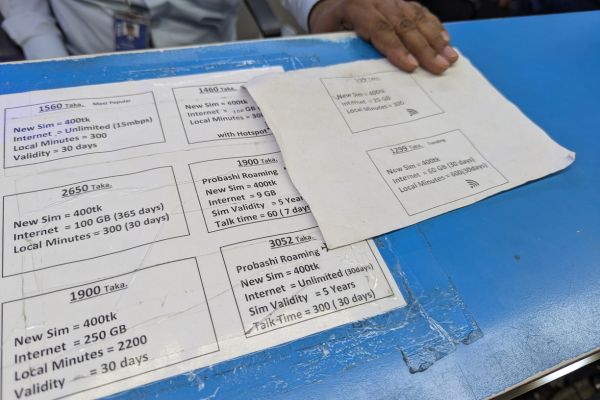 1560 Taka. Most Popular
New Sim = 400tk
Internet = Unlimited (15mbps)
Local Minutes = 300
Validity = 30 days
1460 Taka.
New Sim = 400tk
Internet = GB
Local Minutes = 300
with Hotspot
2650 Taka.
New Sim = 400tk
Internet = 100 GB (365 days)
Local Minutes = 300 (30 days)
1900 Taka.
Probashi Roaming
New Sim = 400tk
Internet = 9 GB
Sim Validity = 5 Years
Talk time = 60 (7 days
1900 Taka.
New Sim = 400tk
Internet = 250 GB
Local Minutes = 2200
Validity = 30 days
3052 Taka.
Probashi Roaming
New Sim = 400tk
Internet = Unlimited (30days)
Sim Validity = 5 Years
Talk Time = 300 ( 30 days)
Taka.
New Sim = 400tk
Internet = 25 GB
Local Minutes = 300
1299 Taka.
New Sim = 400tk
Internet = 60 GB (30 days)
Local Minutes = 600(30days)